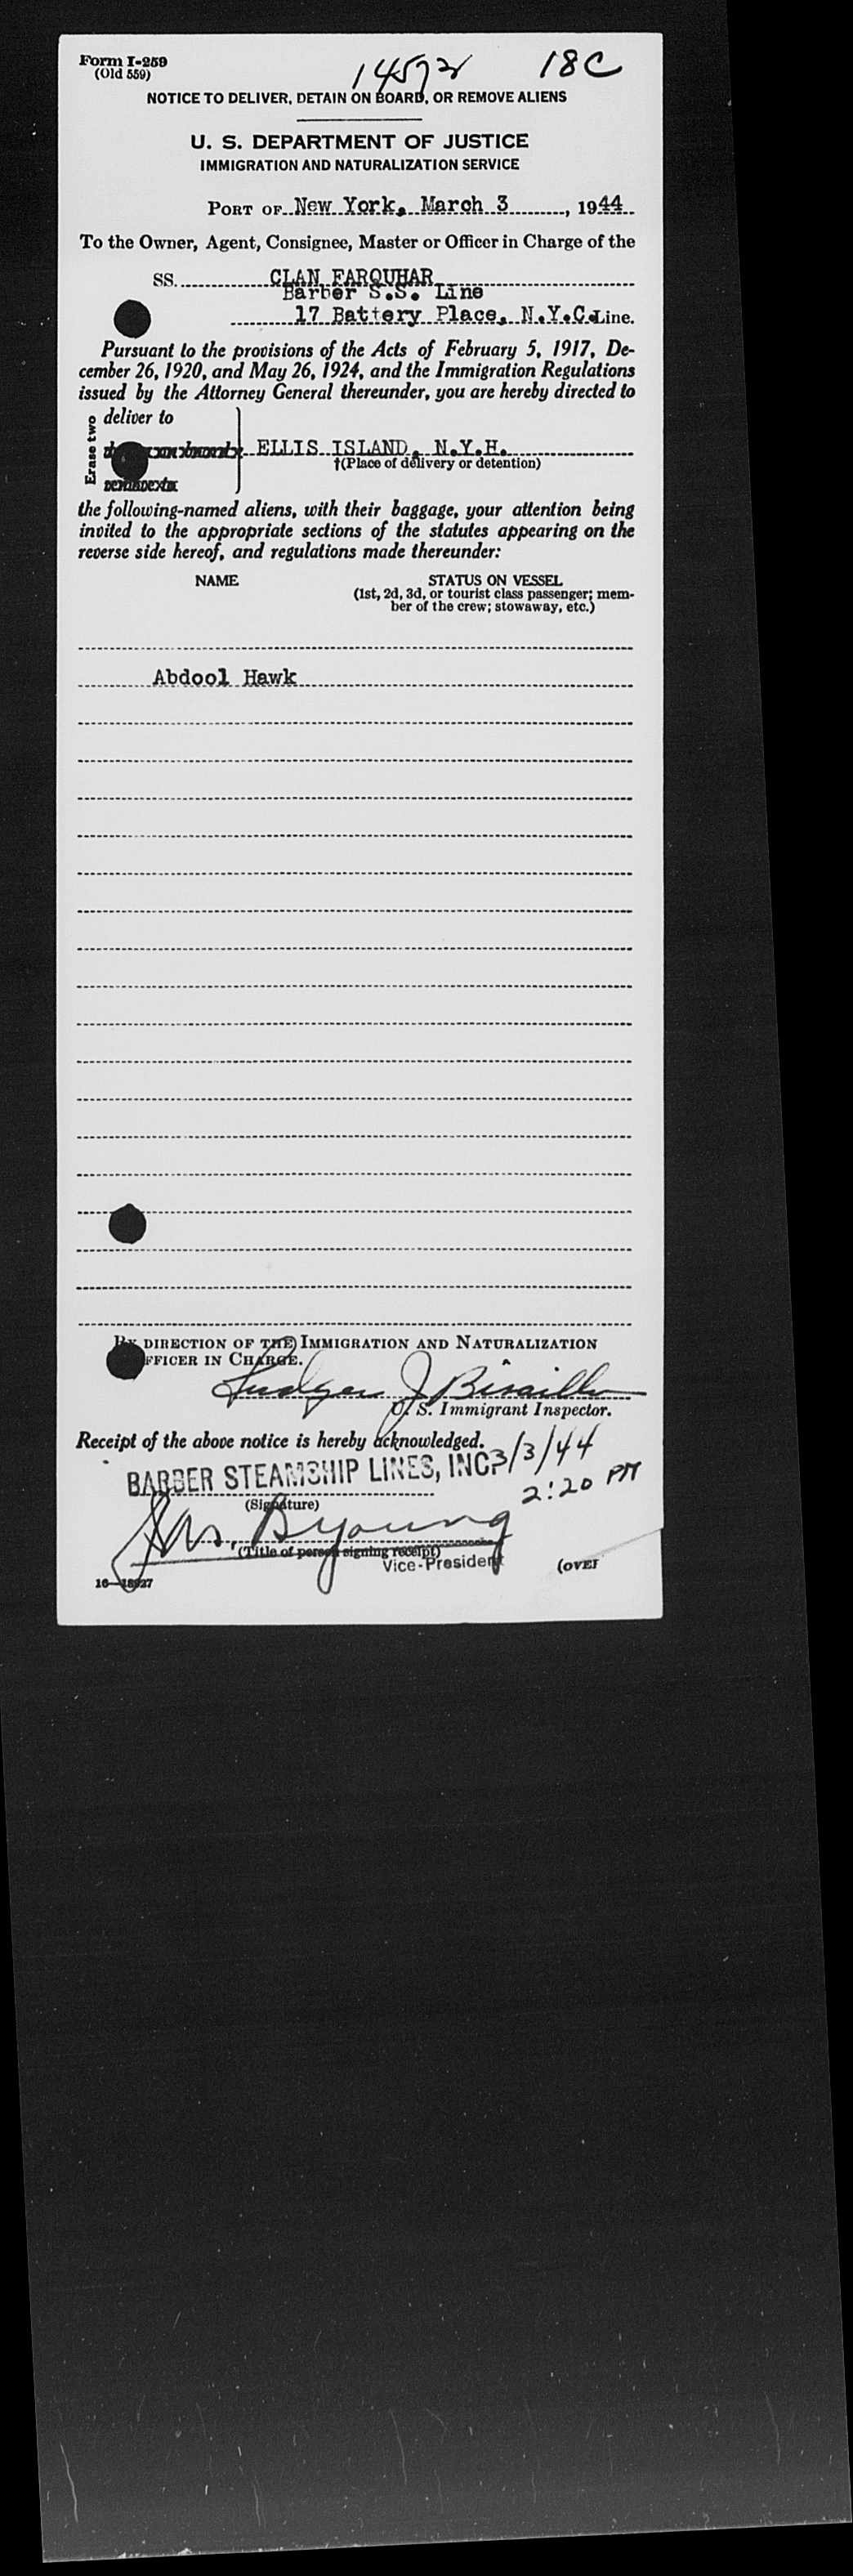 Form I-259
(Old 559)
14592 18C
NOTICE TO DELIVER, DETAIN ON BOARD, OR REMOVE ALIENS
U. S. DEPARTMENT OF JUSTICE
IMMIGRATION AND NATURALIZATION SERVICE
PORT OF New York, March 3, 1944
To the Owner, Agent, Consignee, Master or Officer in Charge of the
SS. CLAN FARQUHAR
Barber S.S. Line
17 Battery Place, N.Y.C. Line.
Pursuant to the provisions of the Acts of February 5, 1917, De-
cember 26, 1920, and May 26, 1924, and the Immigration Regulations
issued by the Attorney General thereunder, you are hereby directed to
Erase two
deliver to
ELLIS ISLAND, N.Y.H.
†(Place of delivery or detention)
the following-named aliens, with their baggage, your attention being
invited to the appropriate sections of the statutes appearing on the
reverse side hereof, and regulations made thereunder:
NAME STATUS ON VESSEL
(1st, 2d, 3d, or tourist class passenger; mem-
ber of the crew; stowaway, etc.)
Abdool Hawk
BY DIRECTION OF THE IMMIGRATION AND NATURALIZATION
OFFICER IN CHARGE.
J
U. S. Immigrant Inspector.
Receipt of the above notice is hereby acknowledged.
BARBER STEAMSHIP LINES, INC. 3/3/44
2:20 PM
(Signature)
Young
(Title of person signing receipt)
Vice-President
(OVER
16—18927